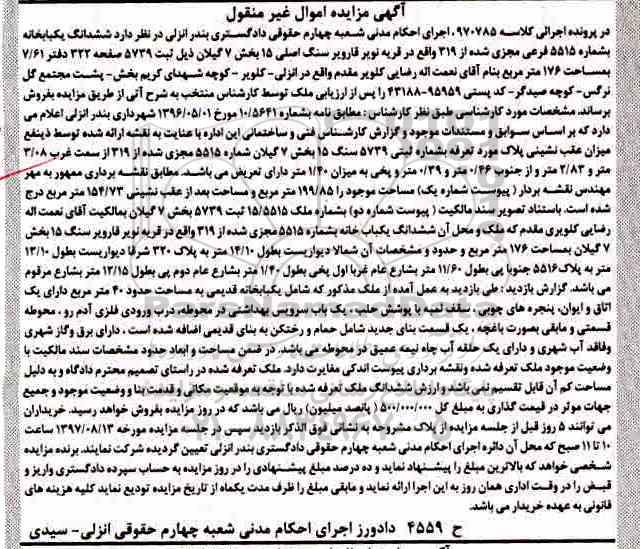 آگهی مزایده اموال غیر منقول
در پرونده اجرائی کلاسه ۹۷۰۷۸۵، اجرای احکام مدنی شعبه چهارم حقوقی دادگستری بندر انزلی در نظر دارد ششدانگ یکبابخانه
بشماره ۵۵۱۵ فرعی مجزی شده از ۳۱۹ واقع در قریه نویر قارویر سنگ اصلی ۱۵ بخش ۷ گیلان ذیل ثبت ۵۷۳۹ صفحه ۳۲۲ دفتر ۷/۶۱
بمساحت ۱۷۶ متر مربع بنام آقای نعمت اله رضایی کلویر مقدم واقع در انزلی- کلویر - کوچه شهدای کریم بخش- پشت مجتمع گل
نرگس- کوچه صیدگر- کد پستی ۹۵۹۵۹-۴۳۱۸۸ را پس از ارزیابی ملک توسط کارشناس منتخب به شرح آتی از طریق مزایده بفروش
برساند. مشخصات مورد کارشناسی طبق نظر کارشناس : مطابق نامه بشماره ۱۰/۵۶۴۱ مورخ ۱۳۹۶/۰۵/۰۱ شهرداری بندر انزلی اعلام می
دارد که بر اساس سوابق و مستندات موجود و گزارش کارشناس فنی و ساختمانی این اداره با عنایت به نقشه ارائه شده توسط ذینفع
میزان عقب نشینی پلاک مورد تعرفه بشماره ثبتی ۵۷۳۹ سنگ ۱۵ بخش ۷ گیلان شماره ۵۵۱۵ مجزی شده از ۳۱۹ از سمت غرب ۳/۰۸
متر و ۲/۸۳ متر و از جنوب ۰/۴۶ متر و ۰/۳۹ متر و پخی به میزان ۱/۴۰ متر دارای تعریض می باشد. مطابق نقشه برداری ممهور به مهر
مهندس نقشه بردار ( پیوست شماره یک) مساحت موجود را ۱۹۹/۸۵ متر مربع و مساحت بعد از عقب نشینی ۱۵۴/۷۳ متر مربع درج
شده است. باستناد تصویر سند مالکیت ( پیوست شماره دو) بشماره ملک ۱۵/۵۵۱۵ ثبت ۵۷۳۹ بخش ۷ گیلان بمالکیت آقای نعمت اله
رضایی کلویری مقدم که ملک و محل آن ششدانگ یکباب خانه بشماره ۵۵۱۵ مجزی شده از ۳۱۹ واقع در قریه نویر قارویر سنگ ۱۵ بخش
۷ گیلان بمساحت ۱۷۶ متر مربع و حدود و مشخصات آن شمالا دیواریست بطول ۱۴/۱۰ متر به پلاک ۳۲۰ شرقا دیواریست بطول ۱۳/۱۰
متر به پلاک ۵۵۱۶ جنوبا پی بطول ۱۱/۶۰ متر بشارع عام غربا اول پخی بطول ۱/۴۰ متر بشارع عام دوم پی بطول ۱۳/۱۵ متر بشارع مرقوم
می باشد. گزارش بازدید : طی بازدید به عمل آمده از ملک مذکور که شامل یکبابخانه قدیمی به مساحت حدود ۴۰ متر مربع دارای یک
اتاق و ایوان، پنجره های چوبی ، سقف لمبه با پوشش حلب، ، یک باب سرویس بهداشتی در محوطه، درب ورودی فلزی آدم رو ، محوطه
قسمتی و مابقی بصورت باغچه ، یک قسمت بنای جدید شامل حمام و رختکن به بنای قدیمی اضافه شده است ، دارای برق وگاز شهری
وفاقد آب شهری و دارای یک حلقه آب چاه نیمه عمیق در محوطه می باشد. در ضمن مساحت و ابعاد حدود مشخصات سند مالکیت با
وضعیت موجود ملک تعرفه شده ونقشه برداری پیوست اندکی مغایرت دارد. ملک تعرفه شده در راستای تصمیم محترم دادگاه و به دلیل
مساحت کم آن قابل تقسیم نمی باشد و ارزش ششدانگ ملک تعرفه شده با توجه به موقعیت مکانی و قدمت بنا و وضعیت موجود و جمیع
جهات موثر در قیمت گذاری به مبلغ کل ۵۰۰/۰۰۰/۰۰۰ ( پانصد میلیون) ریال می باشد که در روز مزایده بفروش خواهد رسید. خریداران
می توانند ۵ روز قبل از جلسه مزایده از پلاک مشروحه به نشانی فوق الذکر بازدید سپس در جلسه مزایده مورخه ۱۳۹۷/۰۸/۱۳ ساعت
۱۰ تا ۱۱ صبح که محل آن دائره اجرای احکام مدنی شعبه چهارم حقوقی دادگستری بندر انزلی تعیین گردیده شرکت نمایند. برنده مزایده
شخصی خواهد که بالاترین مبلغ را پیشنهاد نماید و ده درصد مبلغ پیشنهادی را در روز مزایده به حساب سپرده دادگستری واریز و
قبض را در وقت اداری همان روز به این اجرا ارائه نماید و مابقی مبلغ را ظرف مدت یکماه از تاریخ مزایده تودیع نماید کلیه هزینه های
قانونی به عهده خریدار می باشد.
ح ۴۵۵۹ دادورز اجرای احکام مدنی شعبه چهارم حقوقی انزلی- سیدی